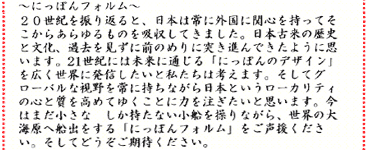 ～にっぽんフォルム～
２０世紀を振り返ると、日本は常に外国に関心を持ってそ
こからあらゆるものを吸収してきました。日本古来の歴史
と文化、過去を見ずに前のめりに突き進んできたように思
います。21世紀には未来に通じる「にっぽんのデザイン」
を広く世界に発信したいと私たちは考えます。そしてグ
ローバルな視野を常に持ちながら日本というローカリティ
の心と質を高めてゆくことに力を注ぎたいと思います。今
はまだ小さな　しか持たない小船を操りながら、世界の大
海原へ船出をする「にっぽんフォルム」をご声援くださ
い。そしてどうぞご期待ください。